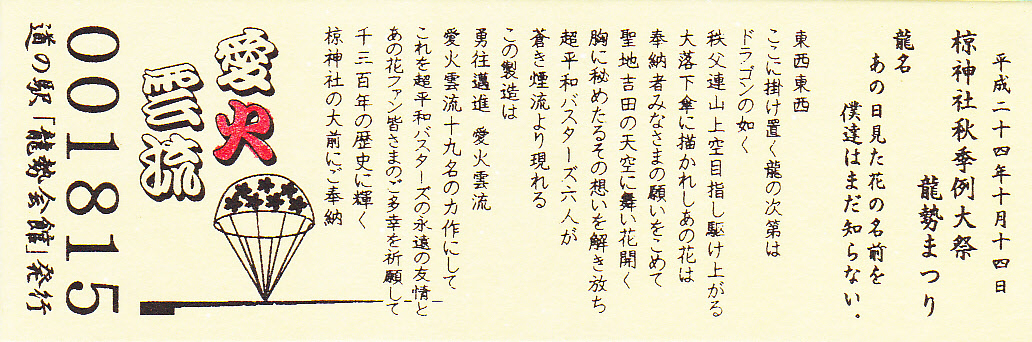 平成二十四年十月十四日
椋神社秋季例大祭
龍勢まつり
龍名
あの日見た花の名前を
僕達はまだ知らない.
東西東西
ここに掛け置く龍の次第は
ドラゴンの如く
秩父連山上空目指し駆け上がる
大落下傘に描かれしあの花は
奉納者みなさまの願いをこめて
聖地吉田の天空に舞い花開く
胸に秘めたるその想いを解き放ち
超平和バスターズ六人が
蒼き煙流より現れる
この製造は
勇往邁進 愛火雲流
愛火雲流十九名の力作にして
これを超平和バスターズの永遠の友情と
あの花ファン皆さまのご多幸を祈願して
千三百年の歴史に輝く
椋神社の大前にご奉納
愛火
雲流
001815
道の駅「龍勢会館」発行